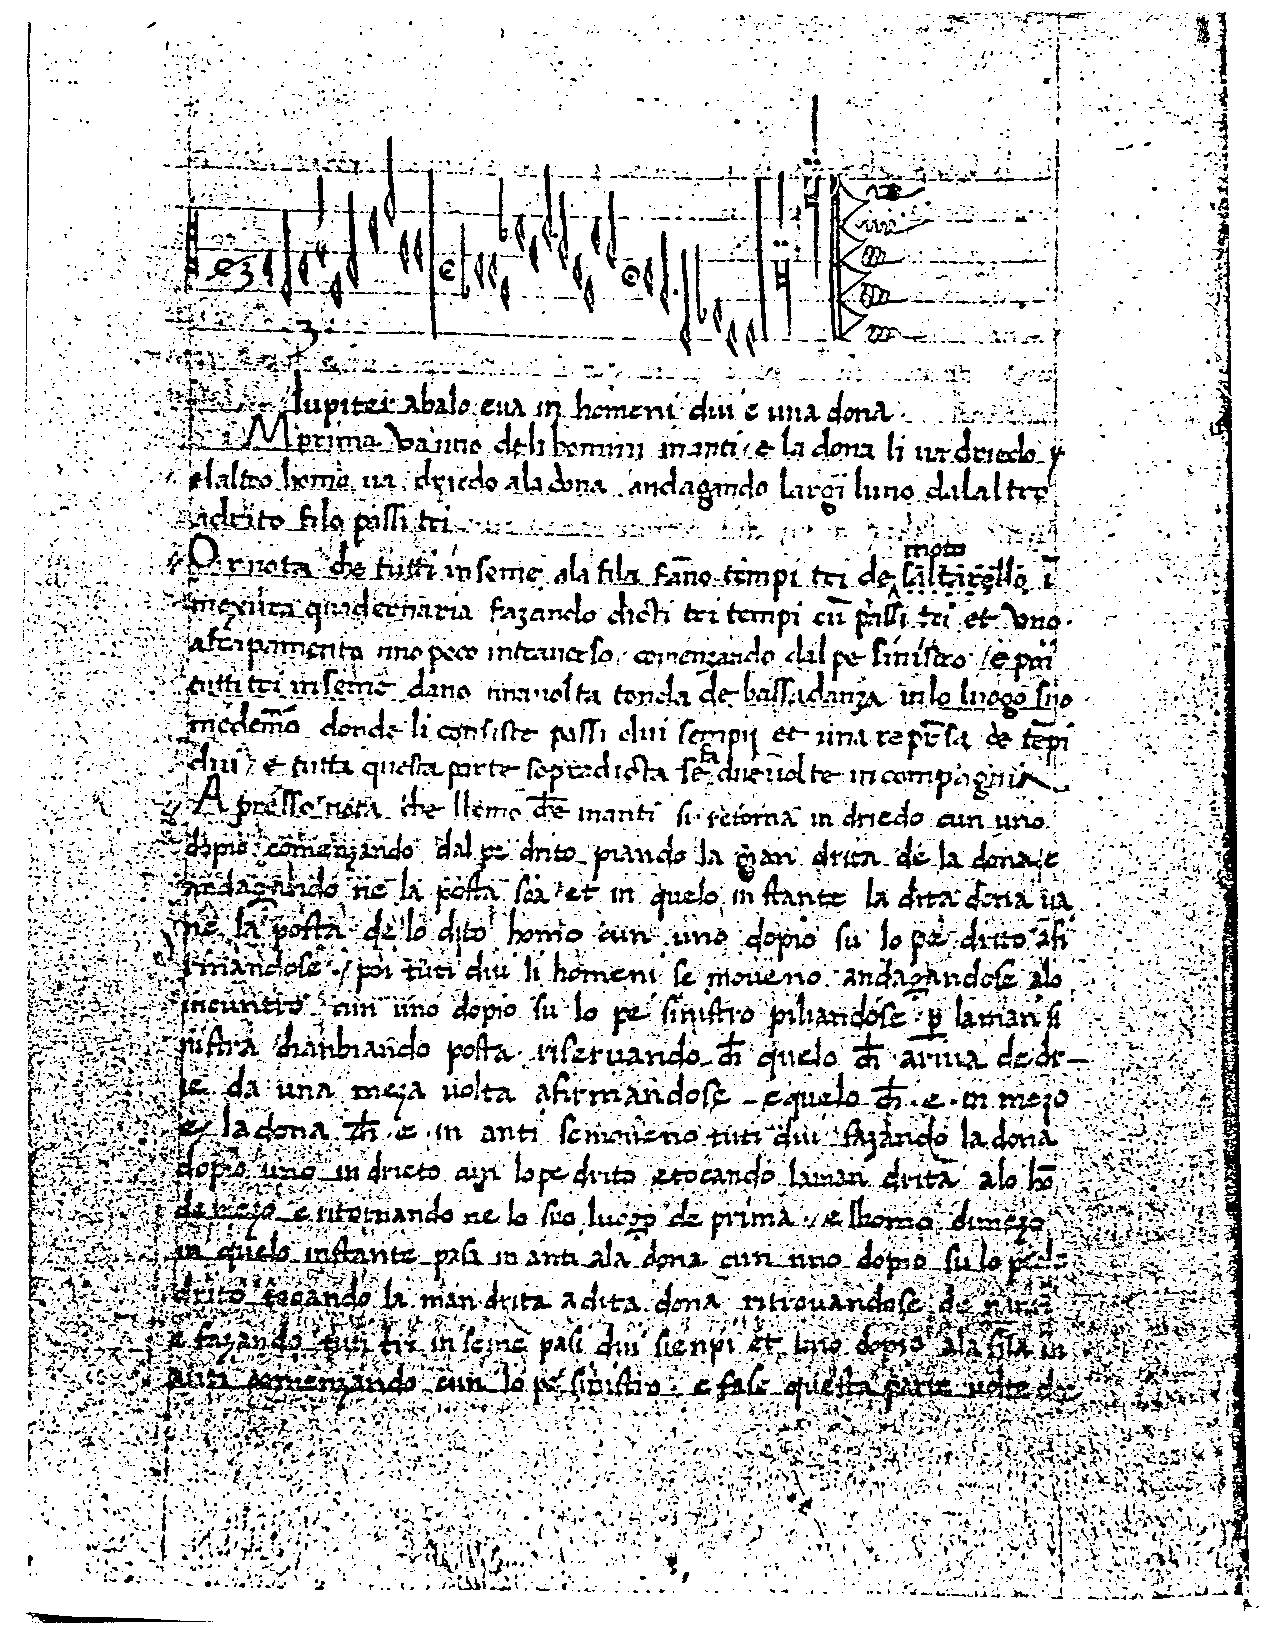 Iupiter abalo eua in homeni dui e una dona.
In prima Va uno deli homini inanti e la dona li ua driedo e
elaltro homo ua driedo ala dona andagando largi luno dalaltro
adrito filo passi tri
moto
Or nota che tutti inseme ala fila fāno tempi tri de saltarello ī
mexura quadernaria fazando dicti tri tempi cū passi tri et Vno
ascapamento uno poco intrauerso comenzando dal pe sinistro / e poi
tutti tri inseme dano una uolta tonda de bassadanza in lo luogo suo
medemo donde li consiste passi dui sempij et una represa de tēpi
dui / e tutta questa parte sopradicta se fa due uolte in compagnia
Apresso nota che llomo ch'e inanti si retorna in driedo cun uno
dopio comenzando dal pe drito piando la man drita de la dona e
andagando ne la posta soa et in quelo instante la dita dona ua
ne la posta de lo dito homo cun uno dopio su lo pe drito afi
rmandose / poi tuti dui li homeni se moueno andagandose alo
incuntro cun uno dopio su lo pe sinistro piliandose p la man si
nistra chanbiando posta riseruando ch quelo ch ariua de dr
ie da una meza uolta afirmandose e quelo ch e in mezo
e la dona ch e in anti se moueno tuti dui fazando la dona
dopio uno in drieto cun lo pe drito e tocando la man drita alo ho
de mezo e ritornando ne lo suo luogo de prima / e lhomo di mezo
in quelo instante pasa in anti ala dona cun uno dopio su lo pede
drito tocando la man drita a dita dona ritrouandose de nanti
e fazando tuti tri inseme pasi dui sienpi et uno dopio ala fila in
anti comenzando cun lo pe sinistro e fase questa parte uolte do